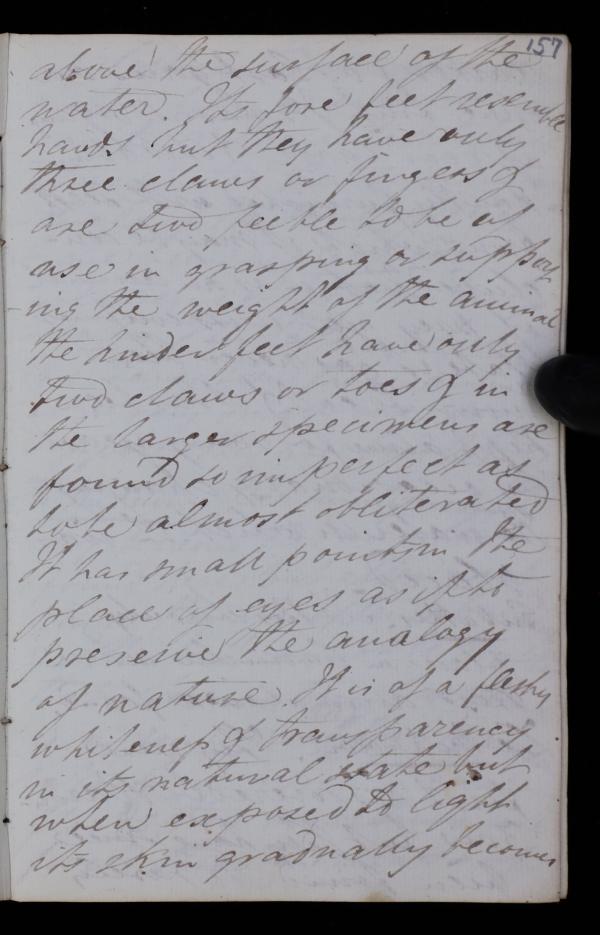 157
above the surface of the
water. Its fore feet resemble
hands but they have only
three claws or fingers &
are two feeble to be of
use in grasping or support
ing the weight of the animal
the hinder feet have only
two claws or toes & in
the larger specimens are
found so imperfect as
to be almost obliterated
It has small points in the
place of eyes as if to
preserve the analogy
of nature. It is of a fleshy
whiteness & transparency
in its natural state but
when exposed to light
its skin gradually becomes